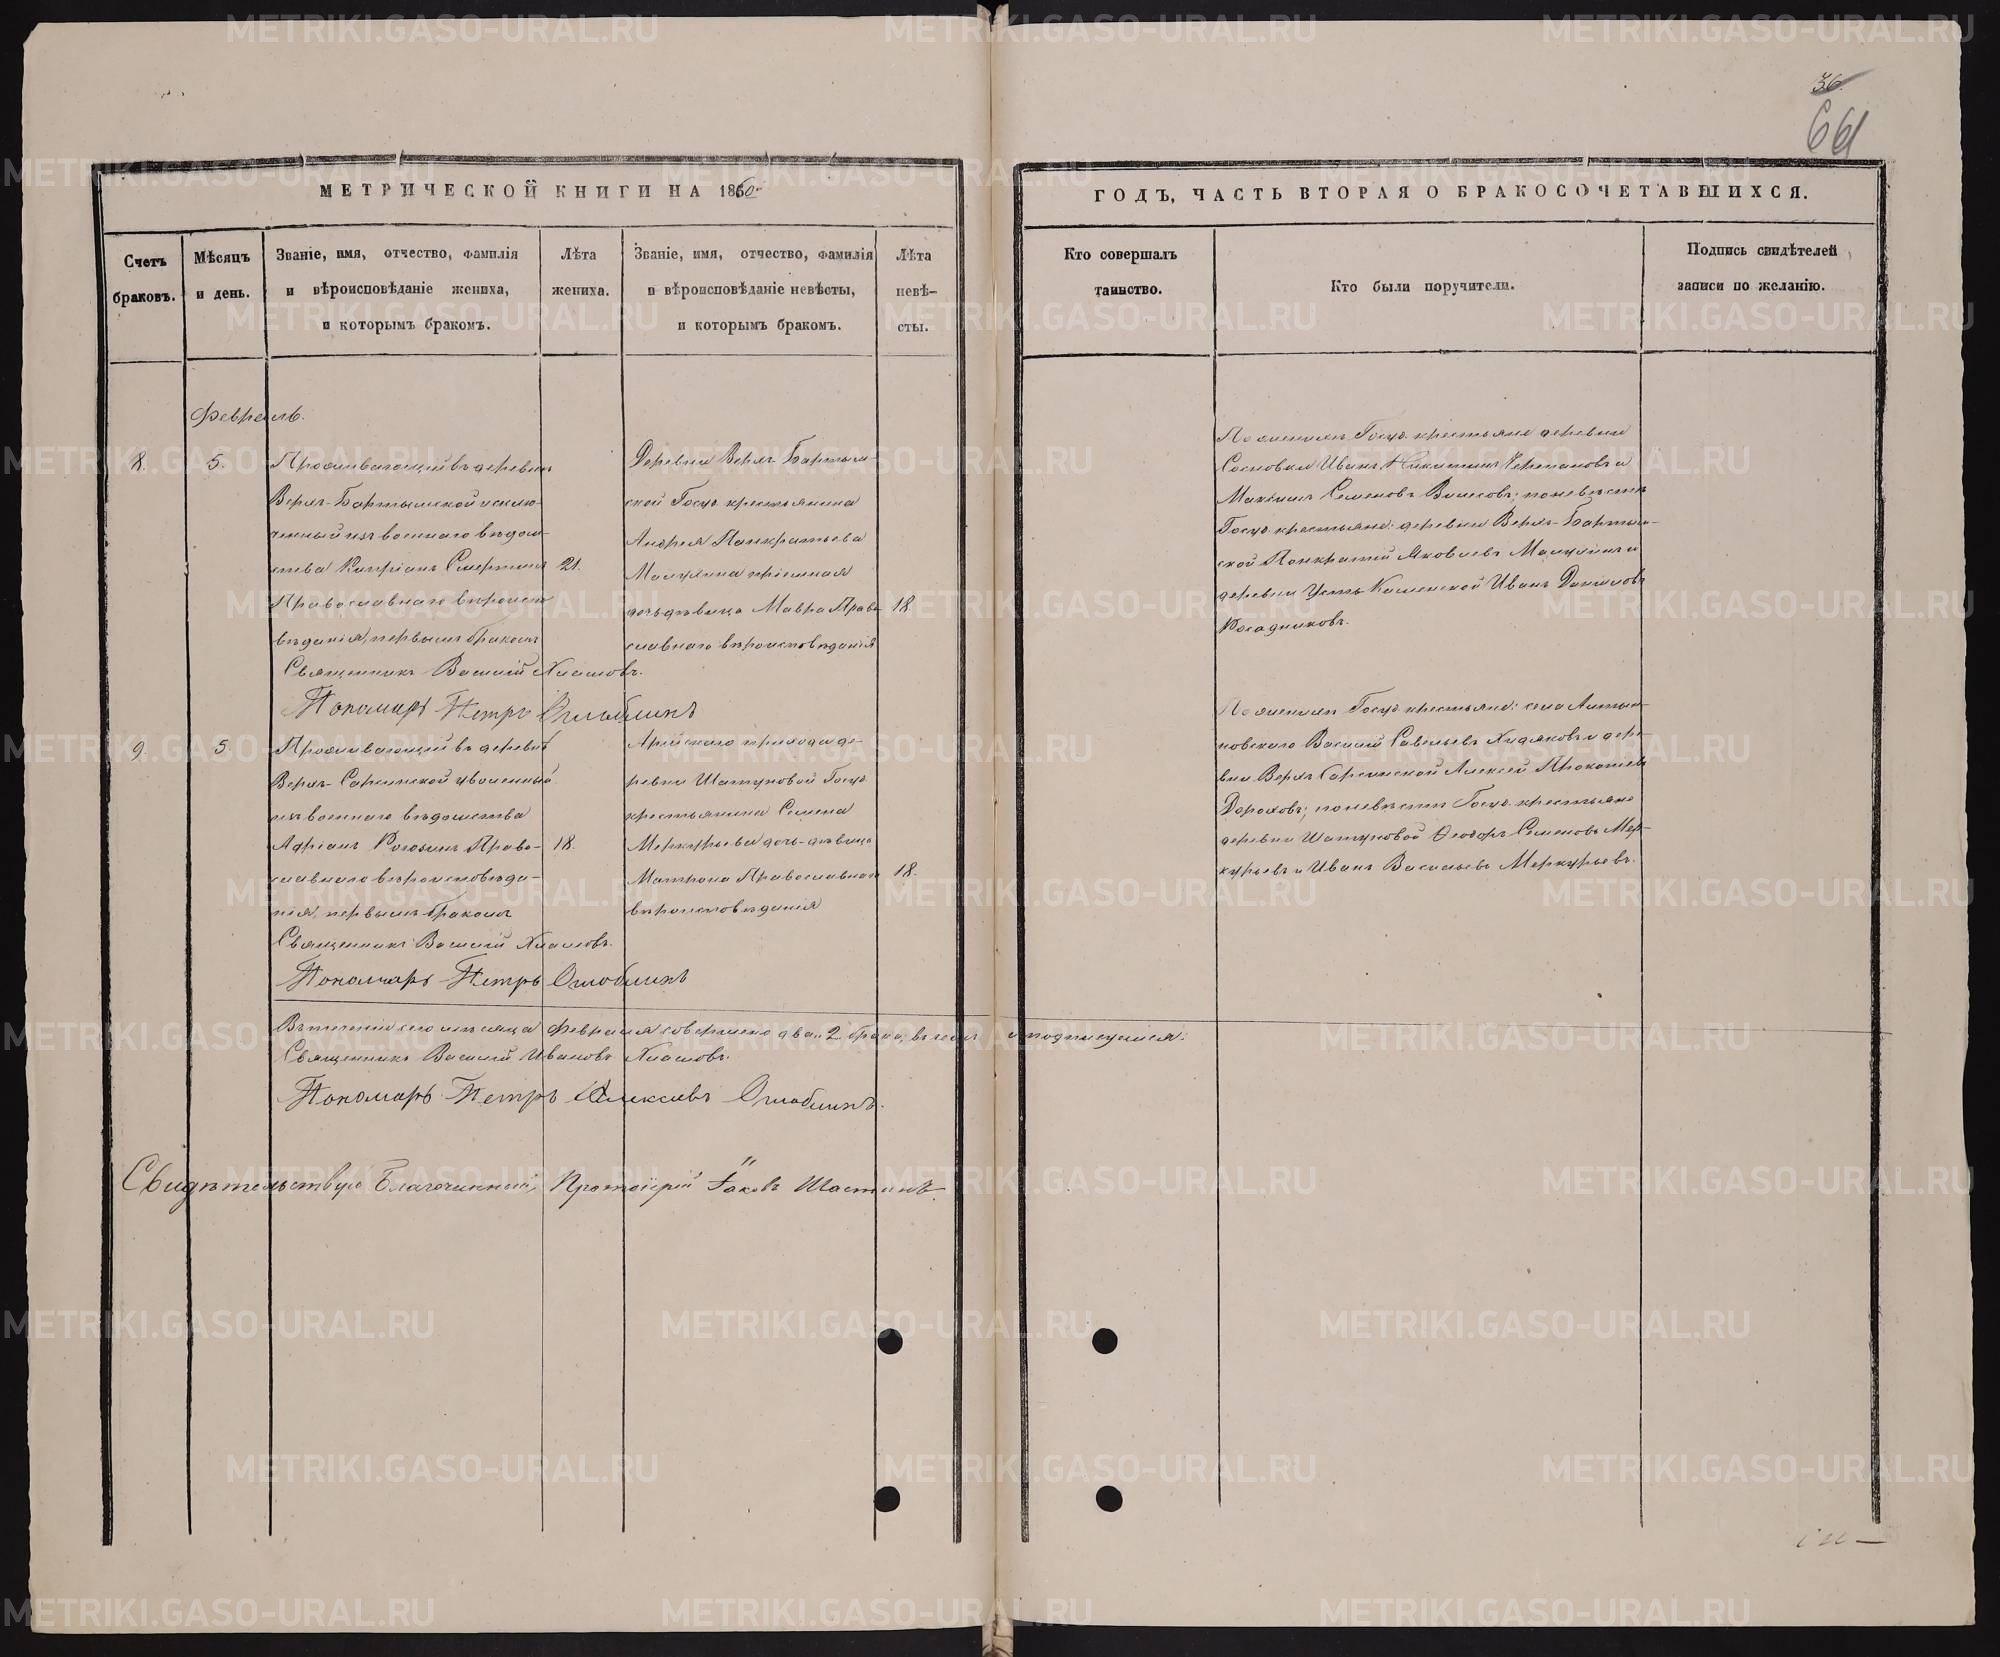 36
МЕТРИЧЕСКОЙ КНИГИ НА 1860
ГОДЪ, ЧАСТЬ ВТОРАЯ О БРАКОСОЧЕТАВШИХСЯ.
Счетъ браковъ.
Мѣсяцъ и день.
Званіе, имя, отчество, фамилія
и вѣроисповѣданіе жениха,
и которымъ бракомъ.
Лѣта
жениха.
Званіе, имя, отчество, фамилія
и вѣроисповѣданіе невѣсты,
и которымъ бракомъ.
Лѣта
невѣ-
сты.
Кто совершалъ
таинство.
Кто были поручители.
Подпись свидѣтелей
записи по желанію.
Февраль.
8.
5.
Проживающій въ деревнѣ
Верхъ-Бартымской исклю-
ченный изъ военнаго вѣдом-
ства Кипріанъ
Православнаго вѣроиспо
вѣданія, первымъ бракомъ
21.
Деревни Верхъ-Бартым-
ской Госуд. крестьянина
Андрея Панкратьева
пріемная
дочь дѣвица Мавра Право
славнаго вѣроисповѣданія
18
По женихѣ Госуд. крестьяне деревни
Сосновки Иванъ Никитинъ Черепановъ и
Максимъ Семеновъ; по невѣстѣ
Госуд. крестьяне: деревни Верхъ-Бартым-
ской Панкратій Яковлевъ и
деревни Усть Каменской Иванъ Даниловъ
Священникъ Василій
Пономарь Петръ Оглоблинъ
9.
5.
Проживающій въ деревнѣ
Верхъ-Саргинской уволенный
изъ военнаго вѣдомства
Адріанъ Рогозинъ Право-
славнаго вѣроисповѣда-
нія, первымъ бракомъ
18.
прихода де-
ревни Шатуновой Госуд.
крестьянина Семена
Меркурьева дочь-дѣвица
Матрона Православнаго
вѣроисповѣданія
18.
По женихѣ Госуд. крестьяне: села
Василій Савельевъ Худяковъ и дере
вни Верхъ Саргинской Алексей Прокопьевъ
Дороховъ; по невѣстѣ Госуд. крестьяне
деревни Шатуновой Ѳеодоръ Семеновъ Мер-
курьевъ и Иванъ Васильевъ Меркурьевъ.
Священникъ Василій
Пономарь Петръ Оглоблинъ
Въ теченіи сего мѣсяца Февраля совершено два "2" брака, въ чемъ и подписуемся:
Священникъ Василій Ивановъ
Пономарь Петръ Алексѣевъ Оглоблинъ.
Свидѣтельствую Благочинный, Протоіерей Іаковъ Шастинъ.
METRIKI.GASO-URAL.RU